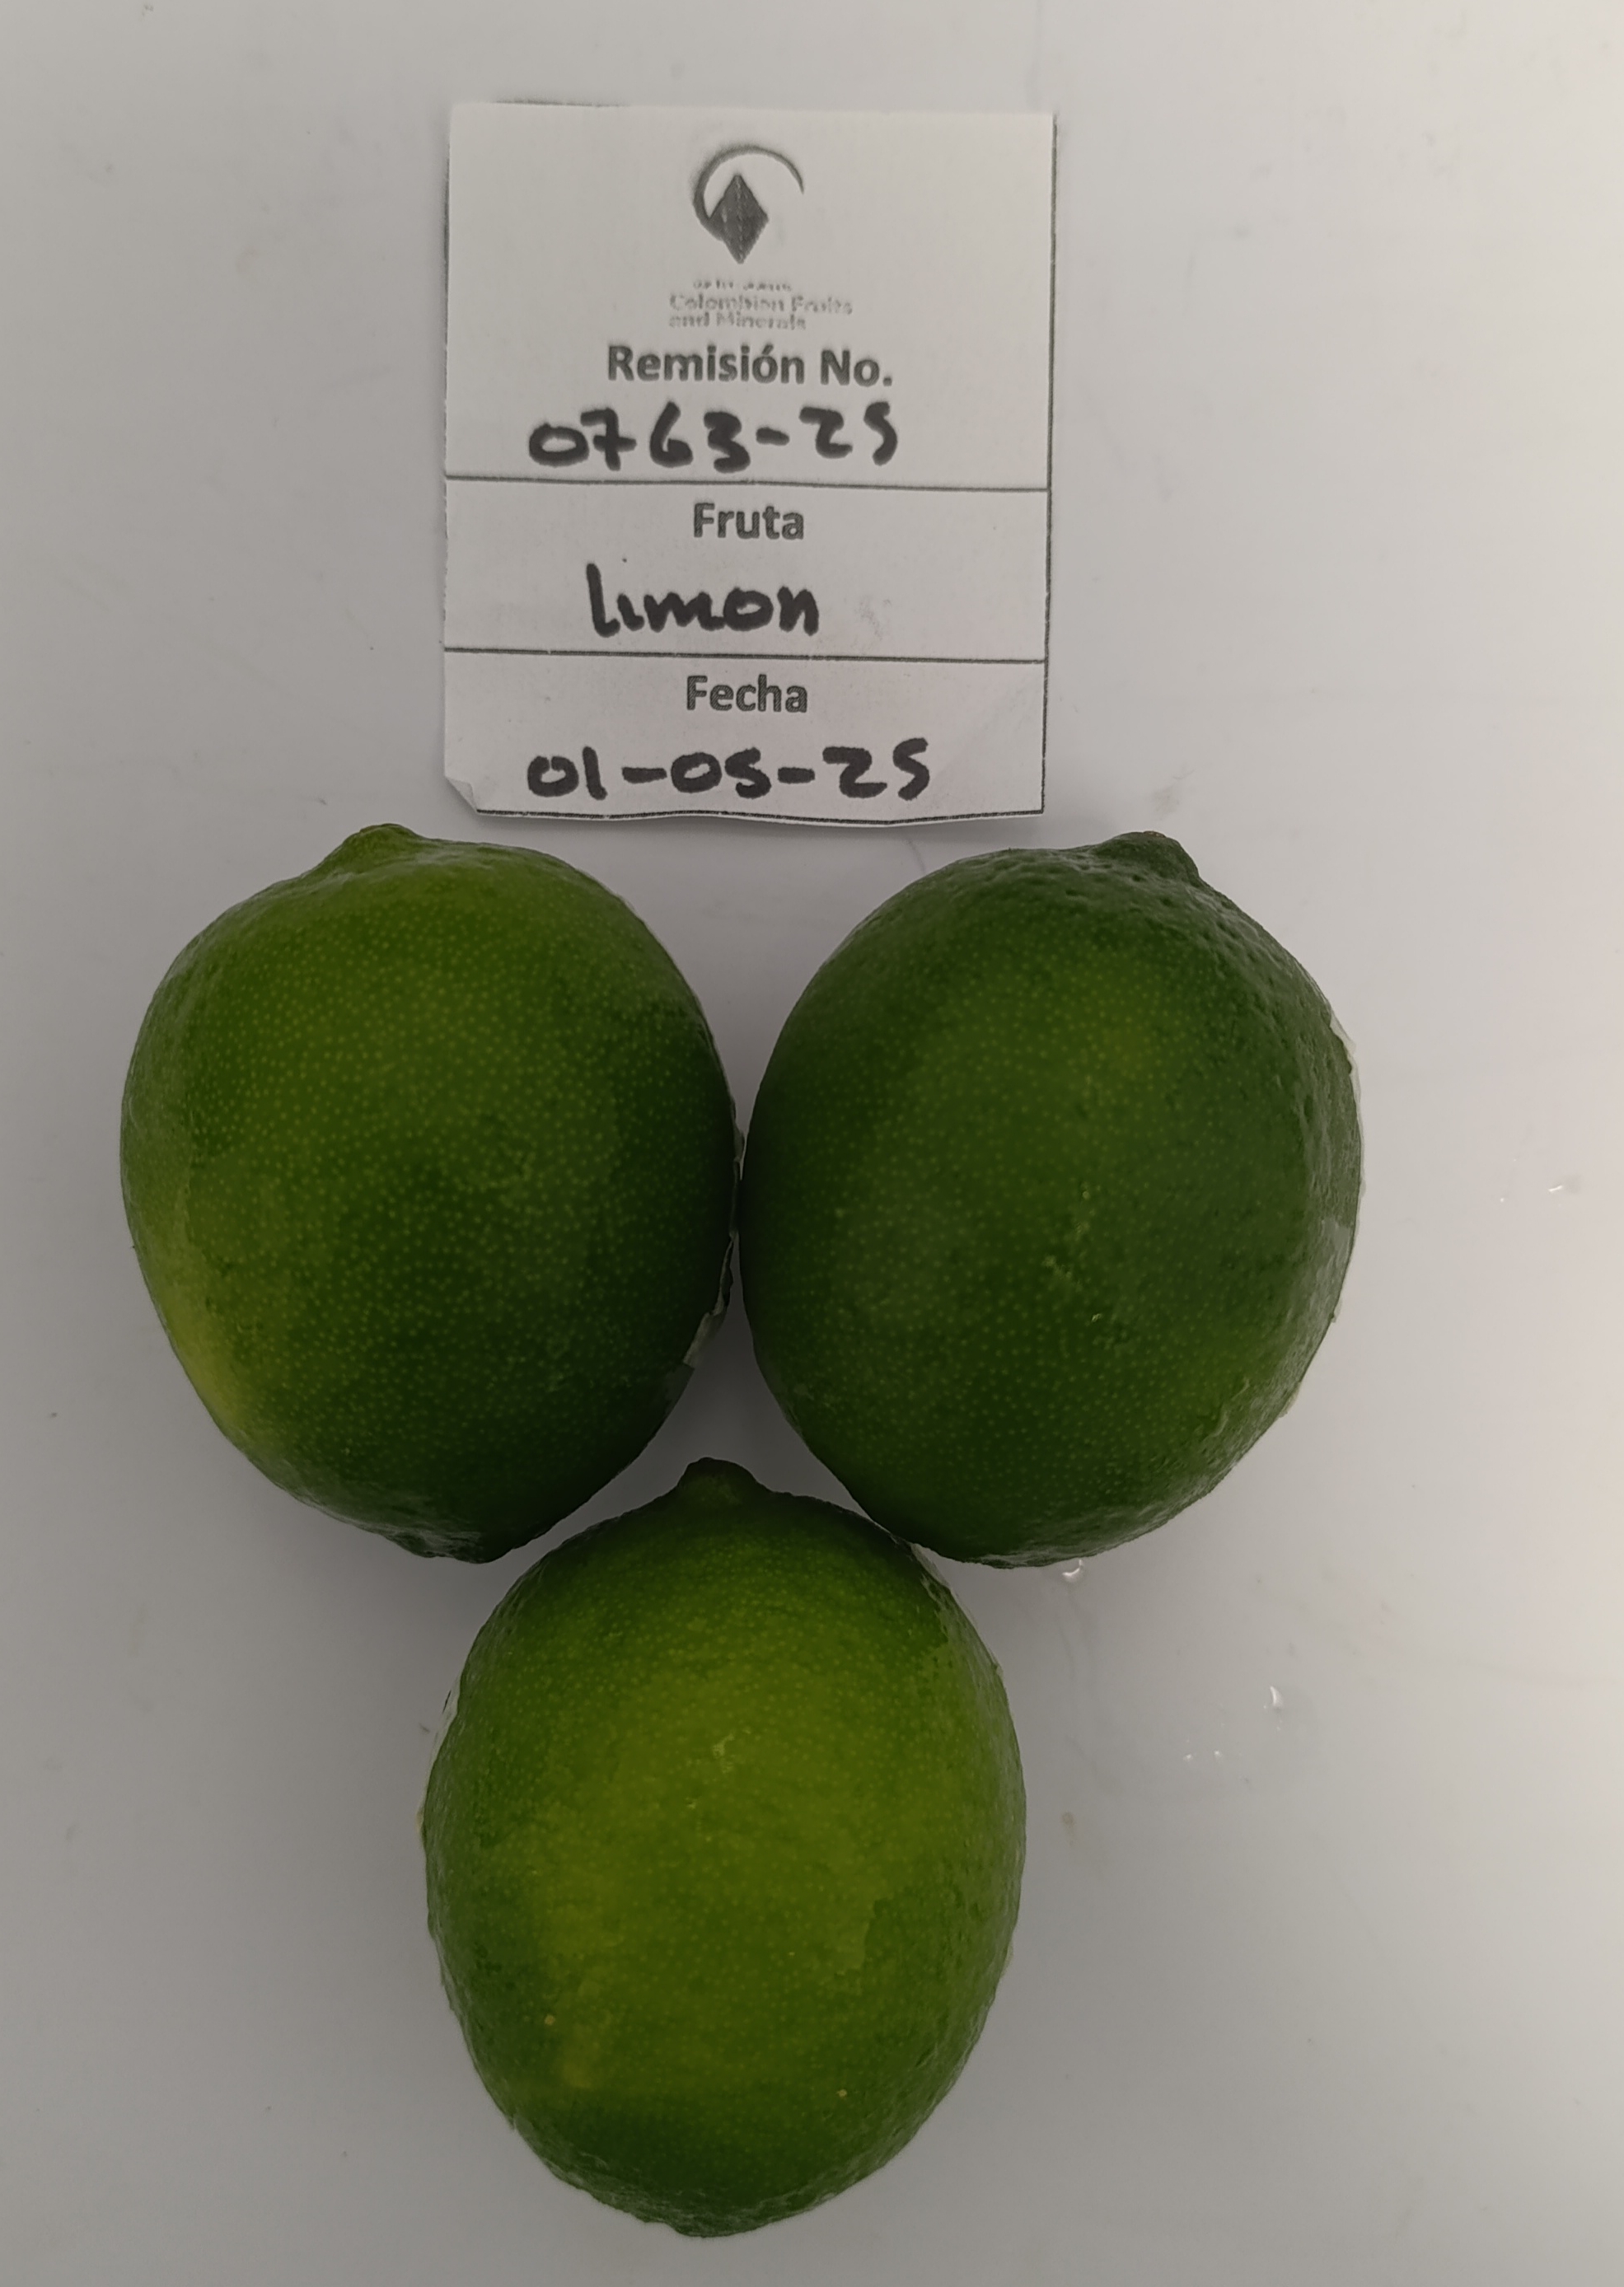 Colombian Fruits
and Minerals
Remisión No.
0763-25
Fruta
limon
Fecha
01-05-25